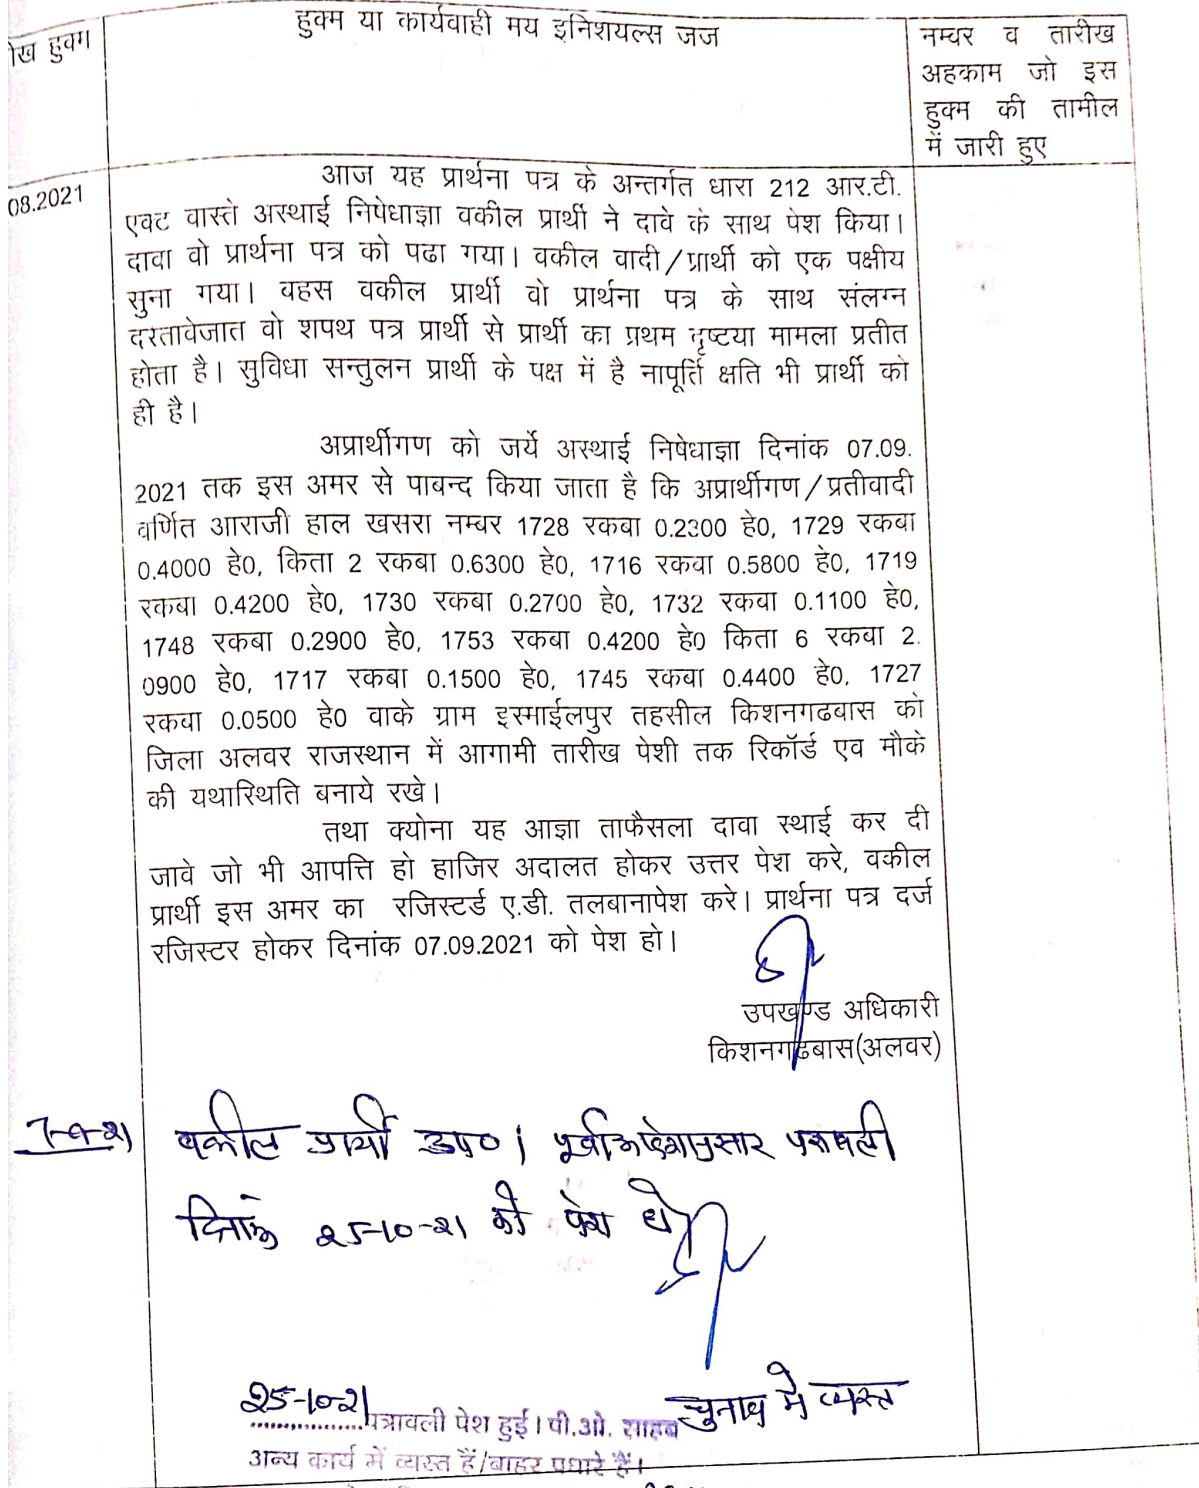 हुक्म या कार्यवाही मय इनिशयल्स जज
नम्बर व तारीख
अहकाम जो इस
हुक्म की तामील
में जारी हुए
08.2021
आज यह प्रार्थना पत्र के अन्तर्गत धारा 212 आर.टी.
एक्ट वास्ते अस्थाई निषेधाज्ञा वकील प्रार्थी ने दावे के साथ पेश किया।
दावा वो प्रार्थना पत्र को पढा गया। वकील वादी/प्रार्थी को एक पक्षीय
सुना गया। वहस वकील प्रार्थी वो प्रार्थना पत्र के साथ संलग्न
दस्तावेजात वो शपथ पत्र प्रार्थी से प्रार्थी का प्रथम दृष्टया मामला प्रतीत
होता है। सुविधा सन्तुलन प्रार्थी के पक्ष में है नापूर्ति क्षति भी प्रार्थी को
ही है।
अप्रार्थीगण को जर्ये अस्थाई निषेधाज्ञा दिनांक 07.09.
2021 तक इस अमर से पाबन्द किया जाता है कि अप्रार्थीगण/प्रतीवादी
वर्णित आराजी हाल खसरा नम्बर 1728 रकबा 0.2300 हे0, 1729 रकबा
0.4000 हे0, किता 2 रकबा 0.6300 हे0, 1716 रकवा 0.5800 हे0, 1719
रकबा 0.4200 हे0, 1730 रकबा 0.2700 हे0, 1732 रकबा 0.1100 हे0,
1748 रकबा 0.2900 हे0, 1753 रकबा 0.4200 हे0 किता 6 रकबा 2.
0900 हे0, 1717 रकबा 0.1500 हे0, 1745 रकबा 0.4400 हे0, 1727
रकबा 0.0500 हे0 वाके ग्राम इस्माईलपुर तहसील किशनगढबास को
जिला अलवर राजस्थान में आगामी तारीख पेशी तक रिकॉर्ड एव मौके
की यथास्थिति बनाये रखे।
तथा क्योना यह आज्ञा ताफैसला दावा स्थाई कर दी
जावे जो भी आपत्ति हो हाजिर अदालत होकर उत्तर पेश करे, वकील
प्रार्थी इस अमर का रजिस्टर्ड ए.डी. तलबानापेश करे। प्रार्थना पत्र दर्ज
रजिस्टर होकर दिनांक 07.09.2021 को पेश हो।
उपखण्ड अधिकारी
किशनगढबास(अलवर)
7-9-21 वकील प्रार्थी उप० । पूर्व आदेशानुसार पत्रावली
दिनांक 25-10-21 को पेश हो
25-10-21 चुनाव में व्यस्त
पत्रावली पेश हुई। पी.ओ. साहब
अन्य कार्य में व्यस्त हैं/बाहर पधारे हैं।